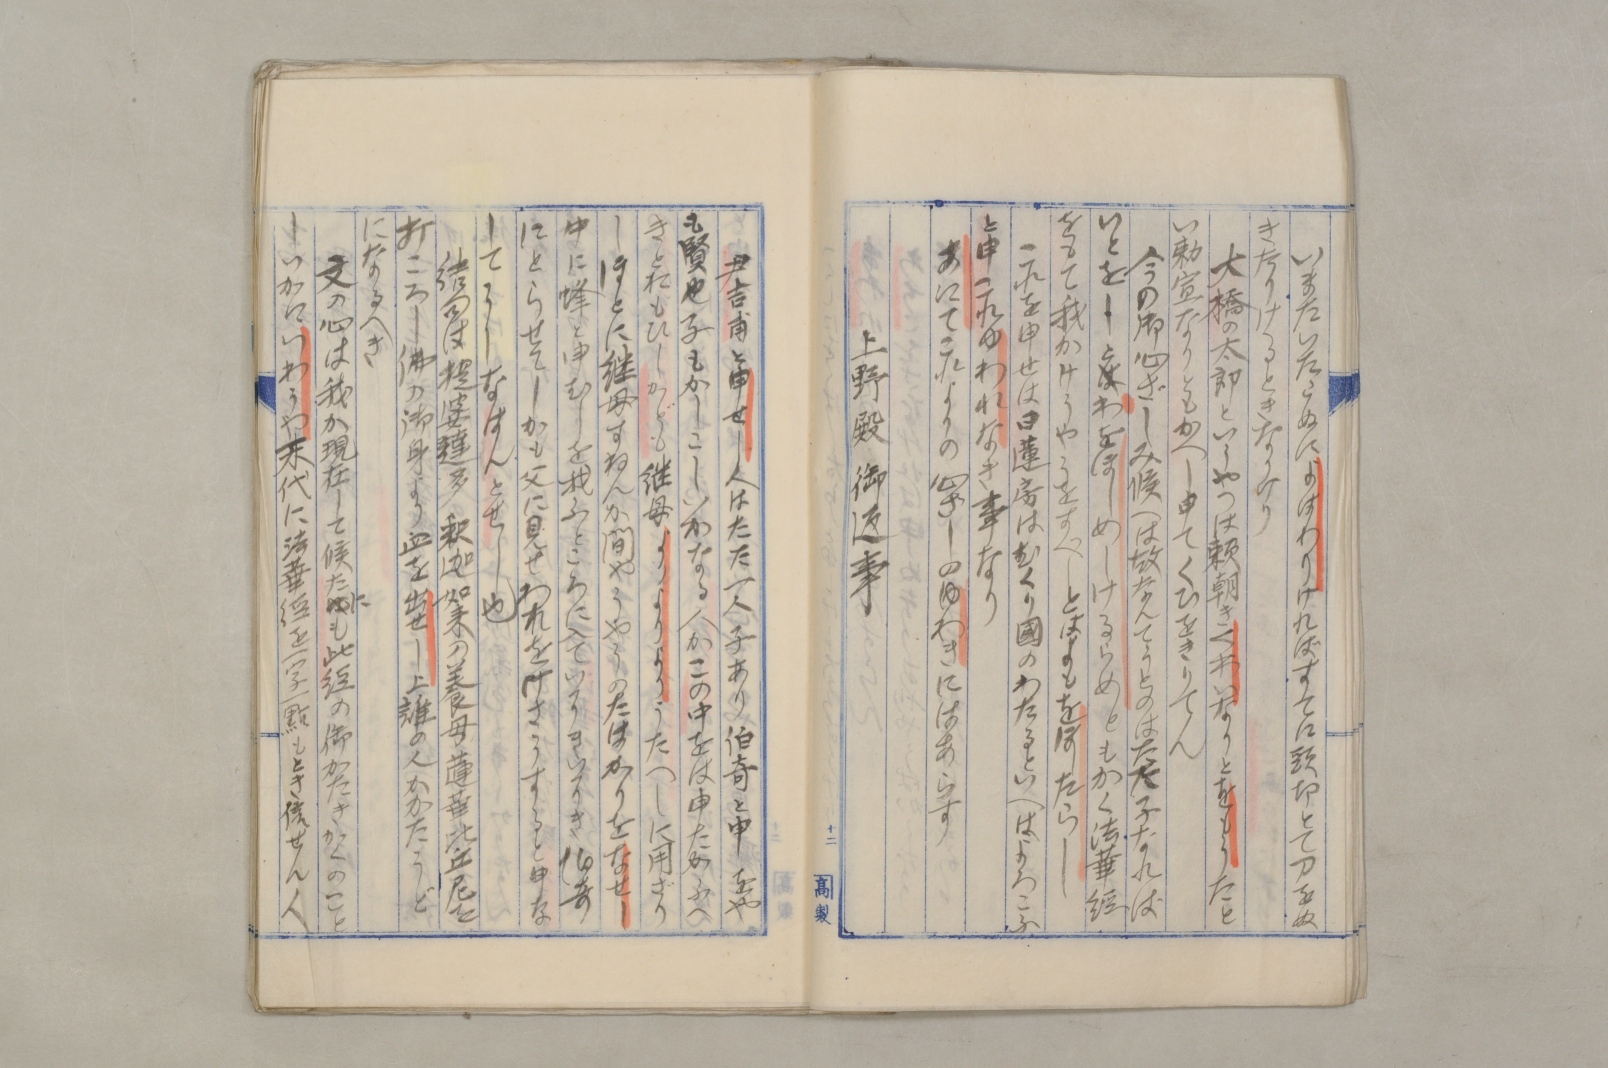 いまたいたさぬによばわりければすてに頸切とて刀をぬ
きたりけるときなりけり
大橋の太郎といゐやつは頼朝きくわいなりとをもうたと
い勅宣なりともかへし申てくひをきりてん
今の御心ざしみ候へは故なんてうとのはたた子なれば
いとをしとわをぼしめしけるらめともかく法華經
をもて我かけうやうをすべしとはよもをぼしたらし
これを申せは日蓮房はむくり國のわたるといへばよろこふ
と申これゆわれなき事なり
あにてこれよりの心ざしのゆわきにはあらす
上野殿御返事
十二
髙製
尹吉甫と申せし人はたた一人子あり伯奇と申をや
も賢也子もかしこしいかなる人かこの中をは申たかふへ
きとおもひしかども継母よりよりうたへしに用ざり
しほとに継母すねんか間やうやうのたはかりをなせし
中に蜂と申むしを我ふところに入ていそきいそき伯奇
にとらせてしかも父に見せわれをけさうすると申な
してうしなはんとせし也
結句は提婆達多釈迦如来の養母蓮華比丘尼を
打ころし佛の御身より血を出せし上誰の人かかたうど
になるへき
文の心は我か現在して候たにも此経の御かたきかくのこと
しいかにいわうや末代に法華経を一字一點もとき信せん人